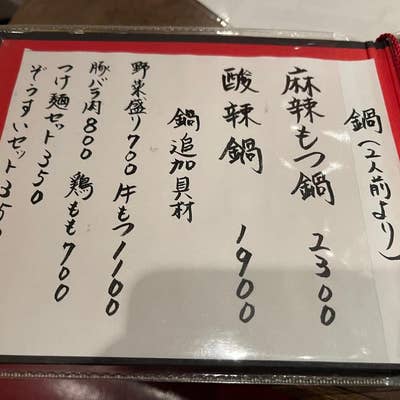 鍋(2人前より)
麻辣もつ鍋 2300
酸辣鍋 1900
鍋追加具材
野菜盛り700 牛もつ1100
豚バラ肉800 鶏もも700
つけ麺セット350
ぞうすいセット350